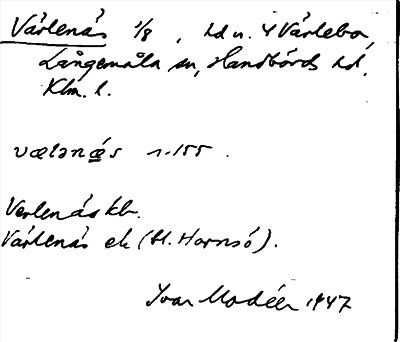 Värlenäs 1/8, hd u. 4 Värlebo,
Långemåla sn, Handbörds hd,
Klm. l.
vælənæs r. 155.
Verlenäs kb.
Värlenäs ek (St. Hornsö).
Ivar Modéer 1947